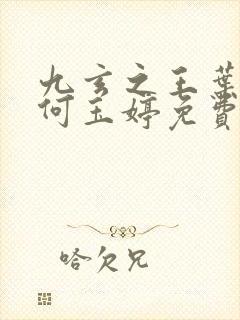 九玄之王葉
何玉婷免費
哈欠兄